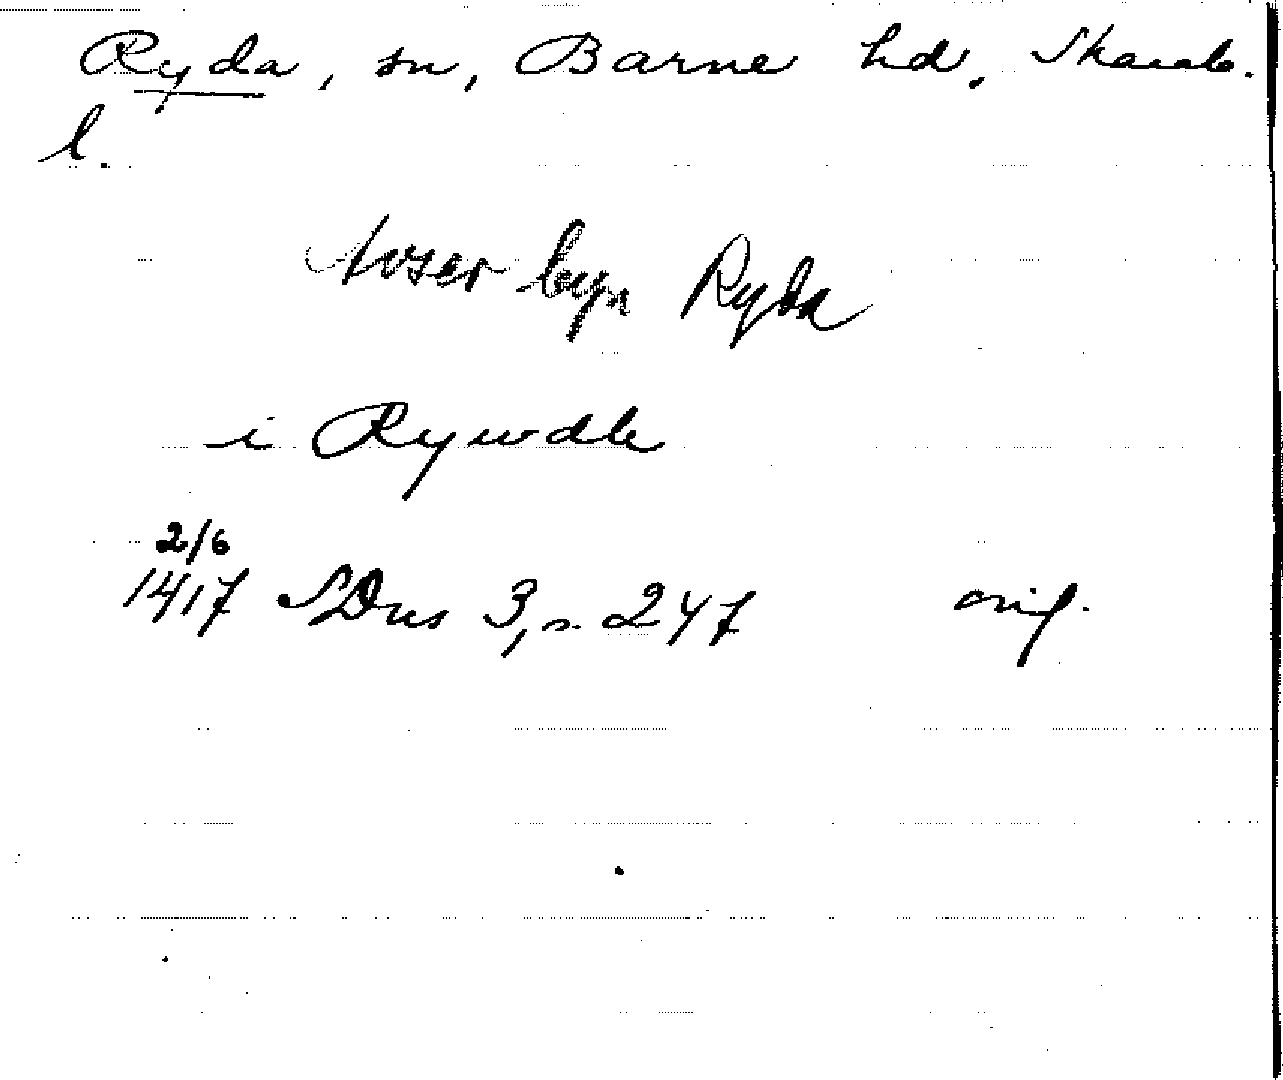 Ryda, sn, Barne hd, Skarab.
l.
Avser byn Ryda
i Rywdle
2/6
1417 SDns 3, s. 247 orig.